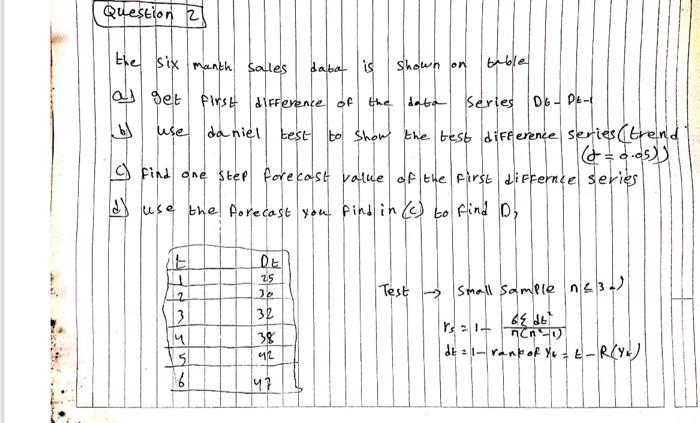 Question 2
the six manth sales data is shown on table
a) get first difference of the data series Dt - Dt-1
b) use daniel test to show the test difference series (trend
(α = 0.05))
c) find one step forecast value of the first differnce series
d) use the forecast you find in (c) to find D7
t Dt
1 25
2 30
3 32
4 38
5 42
6 47
Test → small sample n ≤ 30)
rs = 1 - 6Σ dt² / n(n²-1)
dt = 1 - rank of Yt = t - R(Yt)